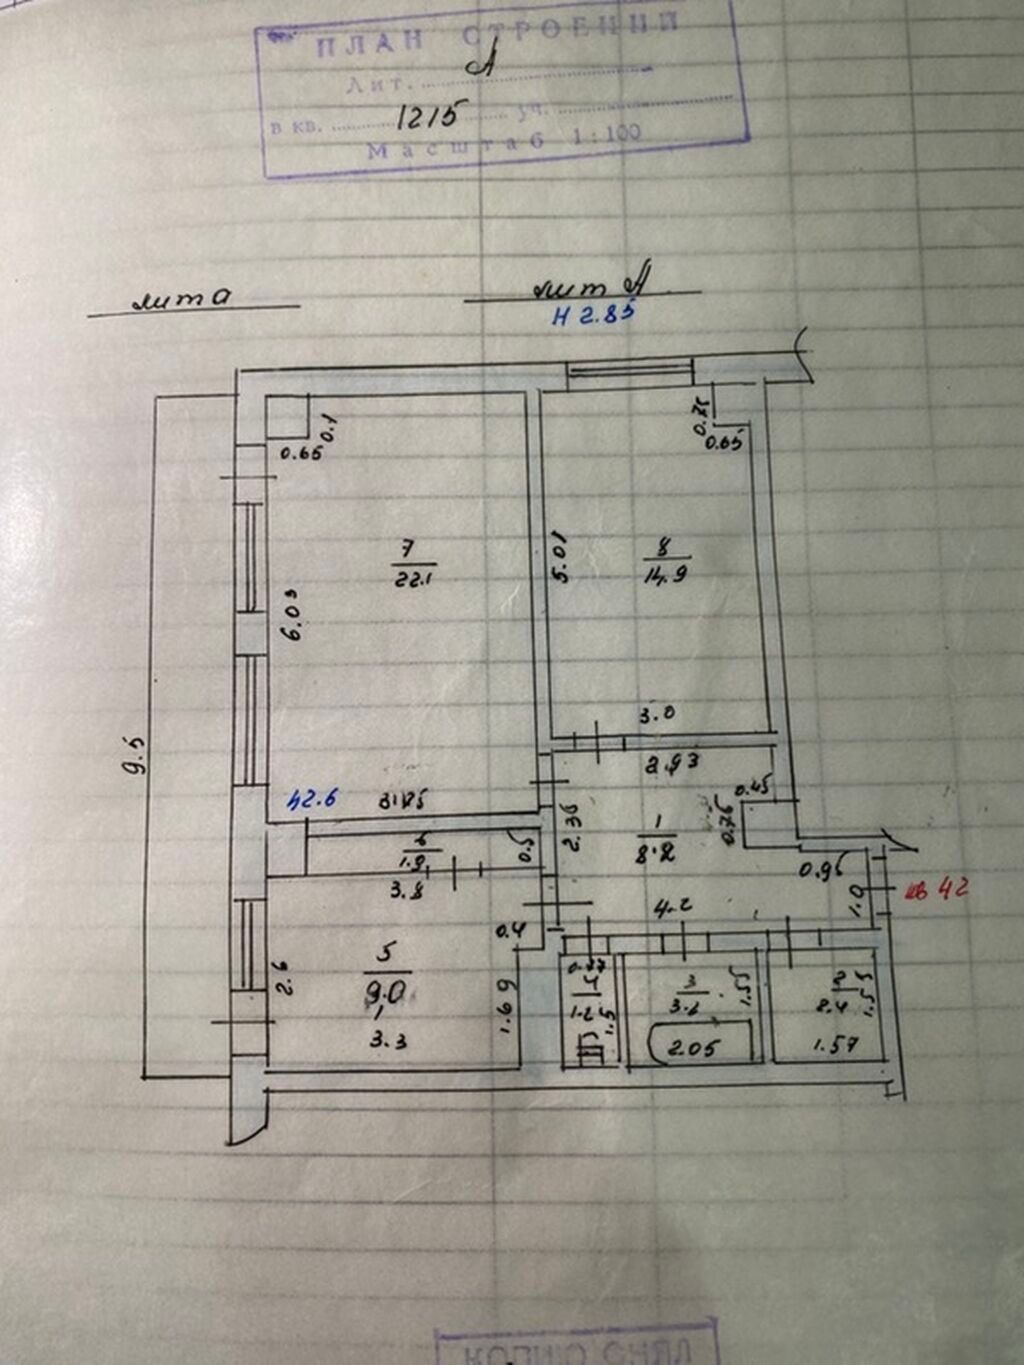 ПЛАН СТРОЕНИЯ
Лит. А
в кв. 1215 уч.
Масштаб 1:100
лит а
лит А
Н 2.85
0.1
0.65
0.75
0.65
7
22.1
5.01
8
14.9
6.03
3.0
2.93
9.5
42.6
3.75
0.45
0.75
2.36
1
8.2
6
1.9
0.5
3.8
0.95
1.0
кв 42
4.2
0.4
5
9.0
2.6
3.3
1.69
0.77
1.2
1.5
3
1.55
2.05
2
2.4
1.55
1.57
КОПИЮ СНЯЛ